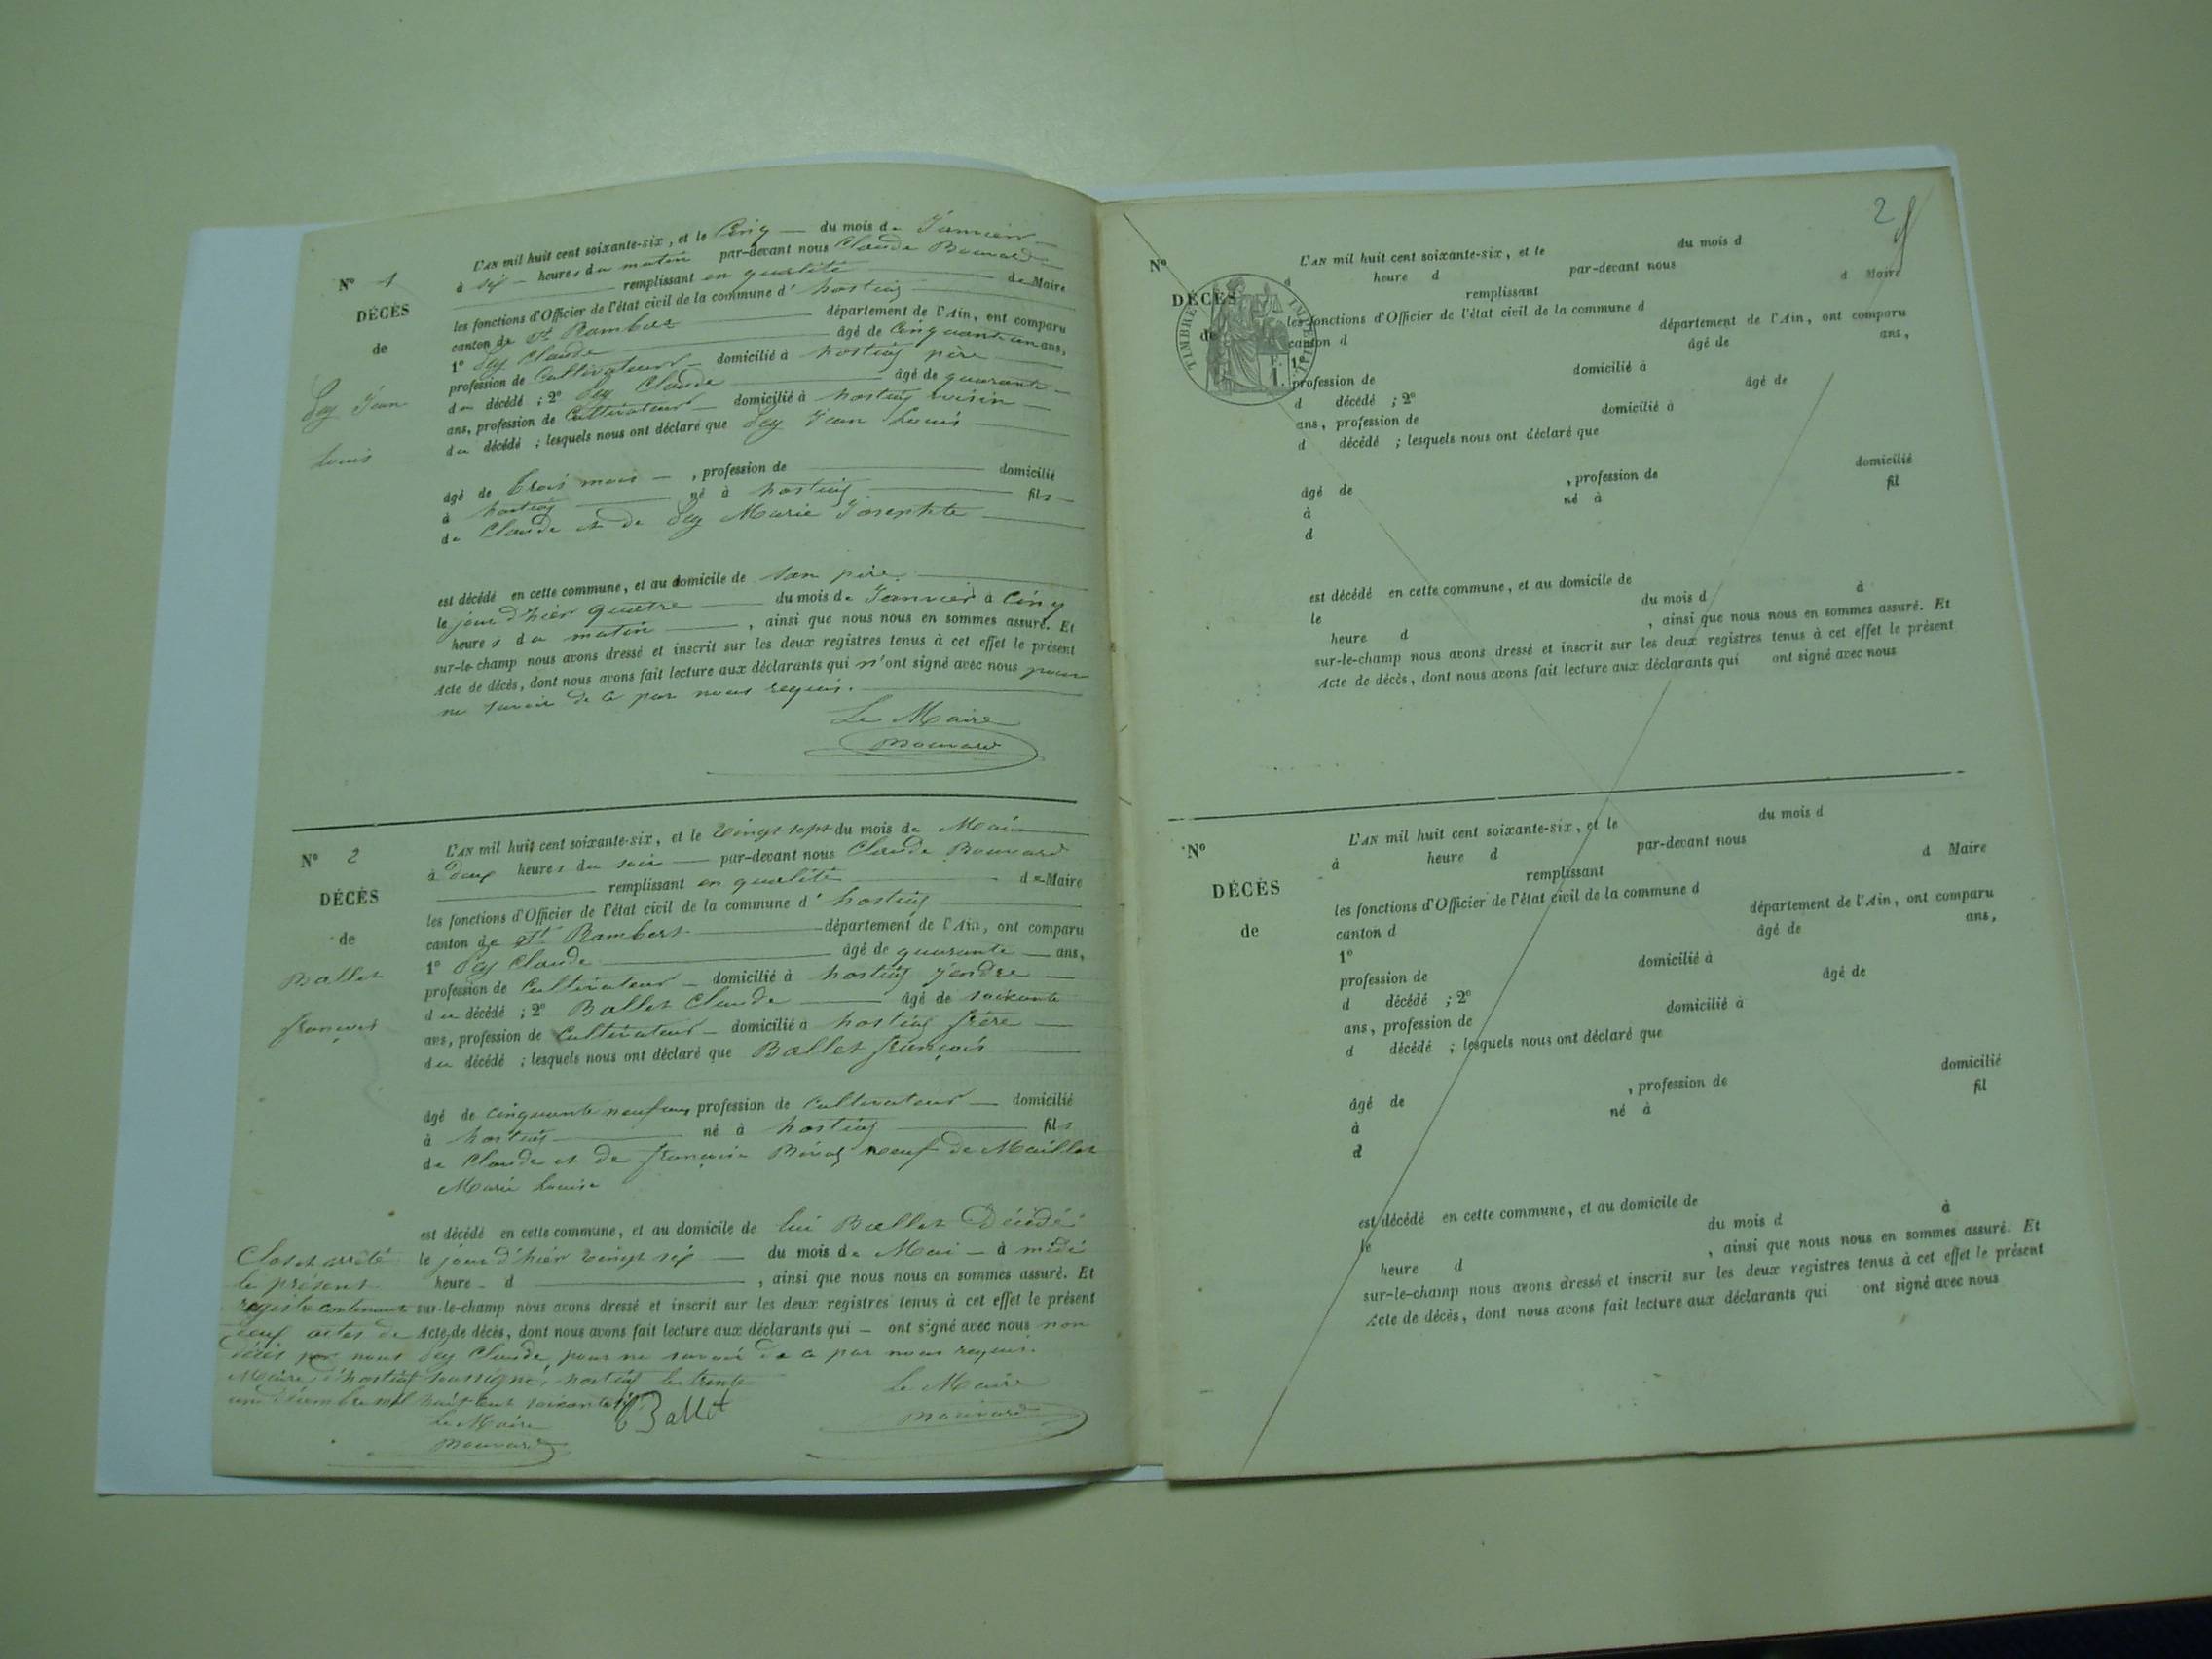 N° 1
DÉCÈS
de
Dey Jean
Louis
L'AN mil huit cent soixante-six, et le Cinq du mois de Janvier
à six heures du matin par-devant nous Claude Bouvard
remplissant en qualité de Maire
les fonctions d'Officier de l'état civil de la commune d' hostiaz
canton de St Rambert département de l'Ain, ont comparu
1° Dey Claude âgé de Cinquante un ans,
profession de Cultivateur domicilié à hostiaz père
du décédé ; 2° Dey Claude âgé de quarante
ans, profession de Cultivateur domicilié à hostiaz voisin
du décédé ; lesquels nous ont déclaré que Dey Jean Louis
âgé de trois mois , profession de domicilié
à hostiaz né à hostiaz fils
de Claude et de Dey Marie Josephte
est décédé en cette commune, et au domicile de son père
le jour d'hier quatre du mois de Janvier à Cinq
heures du matin , ainsi que nous nous en sommes assuré. Et
sur-le-champ nous avons dressé et inscrit sur les deux registres tenus à cet effet le présent
Acte de décès, dont nous avons fait lecture aux déclarants qui n'ont signé avec nous pour
ne savoir de ce par nous requis.
Le Maire
Bouvard
N° 2
DÉCÈS
de
Ballet
françois
L'AN mil huit cent soixante-six, et le vingt sept du mois de Mai
à deux heures du soir par-devant nous Claude Bouvard
remplissant en qualité de Maire
les fonctions d'Officier de l'état civil de la commune d' hostiaz
canton de St Rambert département de l'Ain, ont comparu
1° Dey Claude âgé de quarante ans,
profession de Cultivateur domicilié à hostiaz gendre
du décédé ; 2° Ballet Claude âgé de soixante
ans, profession de Cultivateur domicilié à hostiaz frère
du décédé ; lesquels nous ont déclaré que Ballet françois
âgé de cinquante neuf ans profession de Cultivateur domicilié
à hostiaz né à hostiaz fils
de Claude et de françoise veuf de Maillet
Marie Louise
est décédé en cette commune, et au domicile de lui Ballet Décédé
le jour d'hier vingt six du mois de Mai à midi
heure d , ainsi que nous nous en sommes assuré. Et
sur-le-champ nous avons dressé et inscrit sur les deux registres tenus à cet effet le présent
Acte de décès, dont nous avons fait lecture aux déclarants qui ont signé avec nous non
Dey Claude pour ne savoir de ce par nous requis.
Le Maire
Bouvard
Clos et arrêté
le présent
registre contenant
deux actes de
décès par nous
Maire d'hostiaz soussigné, hostiaz le trente
un Décembre mil huit cent soixante six
Le Maire
Bouvard
Ballet
2
TIMBRE IMPERIAL
N°
DÉCÈS
de
L'AN mil huit cent soixante-six, et le du mois d
à heure d par-devant nous
remplissant d Maire
les fonctions d'Officier de l'état civil de la commune d
canton d département de l'Ain, ont comparu
1° âgé de ans,
profession de domicilié à
d décédé ; 2° âgé de
ans, profession de domicilié à
d décédé ; lesquels nous ont déclaré que
âgé de , profession de domicilié
à né à fil
d
est décédé en cette commune, et au domicile de
le du mois d à
heure d , ainsi que nous nous en sommes assuré. Et
sur-le-champ nous avons dressé et inscrit sur les deux registres tenus à cet effet le présent
Acte de décès, dont nous avons fait lecture aux déclarants qui ont signé avec nous
N°
DÉCÈS
de
L'AN mil huit cent soixante-six, et le du mois d
à heure d par-devant nous
remplissant d Maire
les fonctions d'Officier de l'état civil de la commune d
canton d département de l'Ain, ont comparu
1° âgé de ans,
profession de domicilié à
d décédé ; 2° âgé de
ans, profession de domicilié à
d décédé ; lesquels nous ont déclaré que
âgé de , profession de domicilié
à né à fil
d
est décédé en cette commune, et au domicile de
le du mois d à
heure d , ainsi que nous nous en sommes assuré. Et
sur-le-champ nous avons dressé et inscrit sur les deux registres tenus à cet effet le présent
Acte de décès, dont nous avons fait lecture aux déclarants qui ont signé avec nous